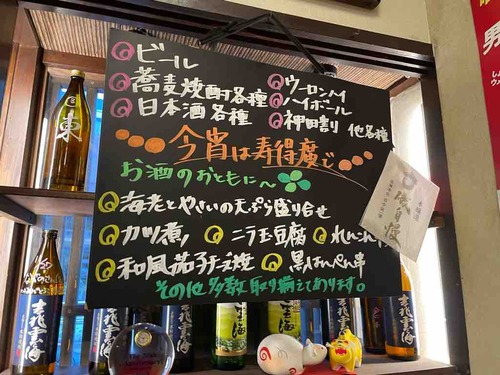 ビール
蕎麦焼酎各種 ウーロンハイ
日本酒各種 ハイボール
神田割り 他各種
今宵は寿得廣で
お酒のおともに〜
海老とやさいの天ぷら盛り合せ
カツ煮 ニラ玉豆腐
和風茄子チーズ焼 黒はんぺん串
その他多数取り揃えてあります。
東
雲海
雲海
雲海